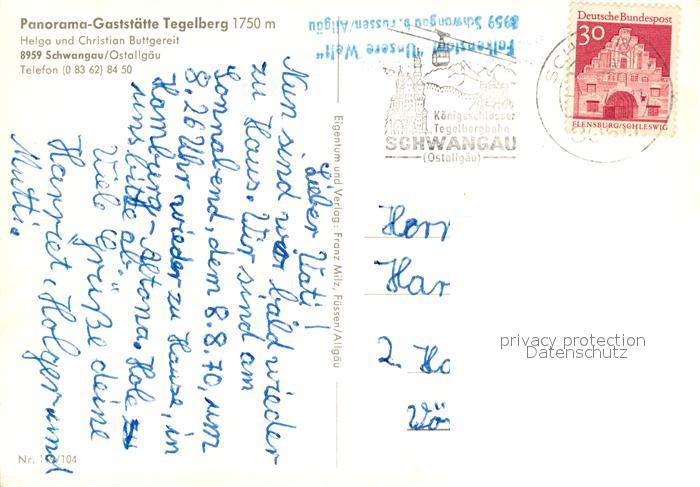 Panorama-Gaststätte Tegelberg 1750 m
Helga und Christian Buttgereit
8959 Schwangau/Ostallgäu
Telefon (0 83 62) 84 50
Lieber Vati!
Nun sind wir bald wieder
zu Haus. Wir sind am
Sonnabend, dem 8.8.70, um
8.26 Uhr wieder zu Hause, in
Hamburg-Altona. Hole
uns bitte ab.
Viele Grüße deine
Harriet, Holger und
Mutti.
Nr. /104
Eigentum und Verlag: Franz Milz, Füssen/Allgäu
"Unsere Welt"
8959 Schwangau b. Füssen/Allgäu
Königsschlösser
Tegelbergbahn
SCHWANGAU
(Ostallgäu)
Deutsche Bundespost
30
FLENSBURG/SCHLESWIG
Herr
Har
2 Ha
privacy protection
Datenschutz